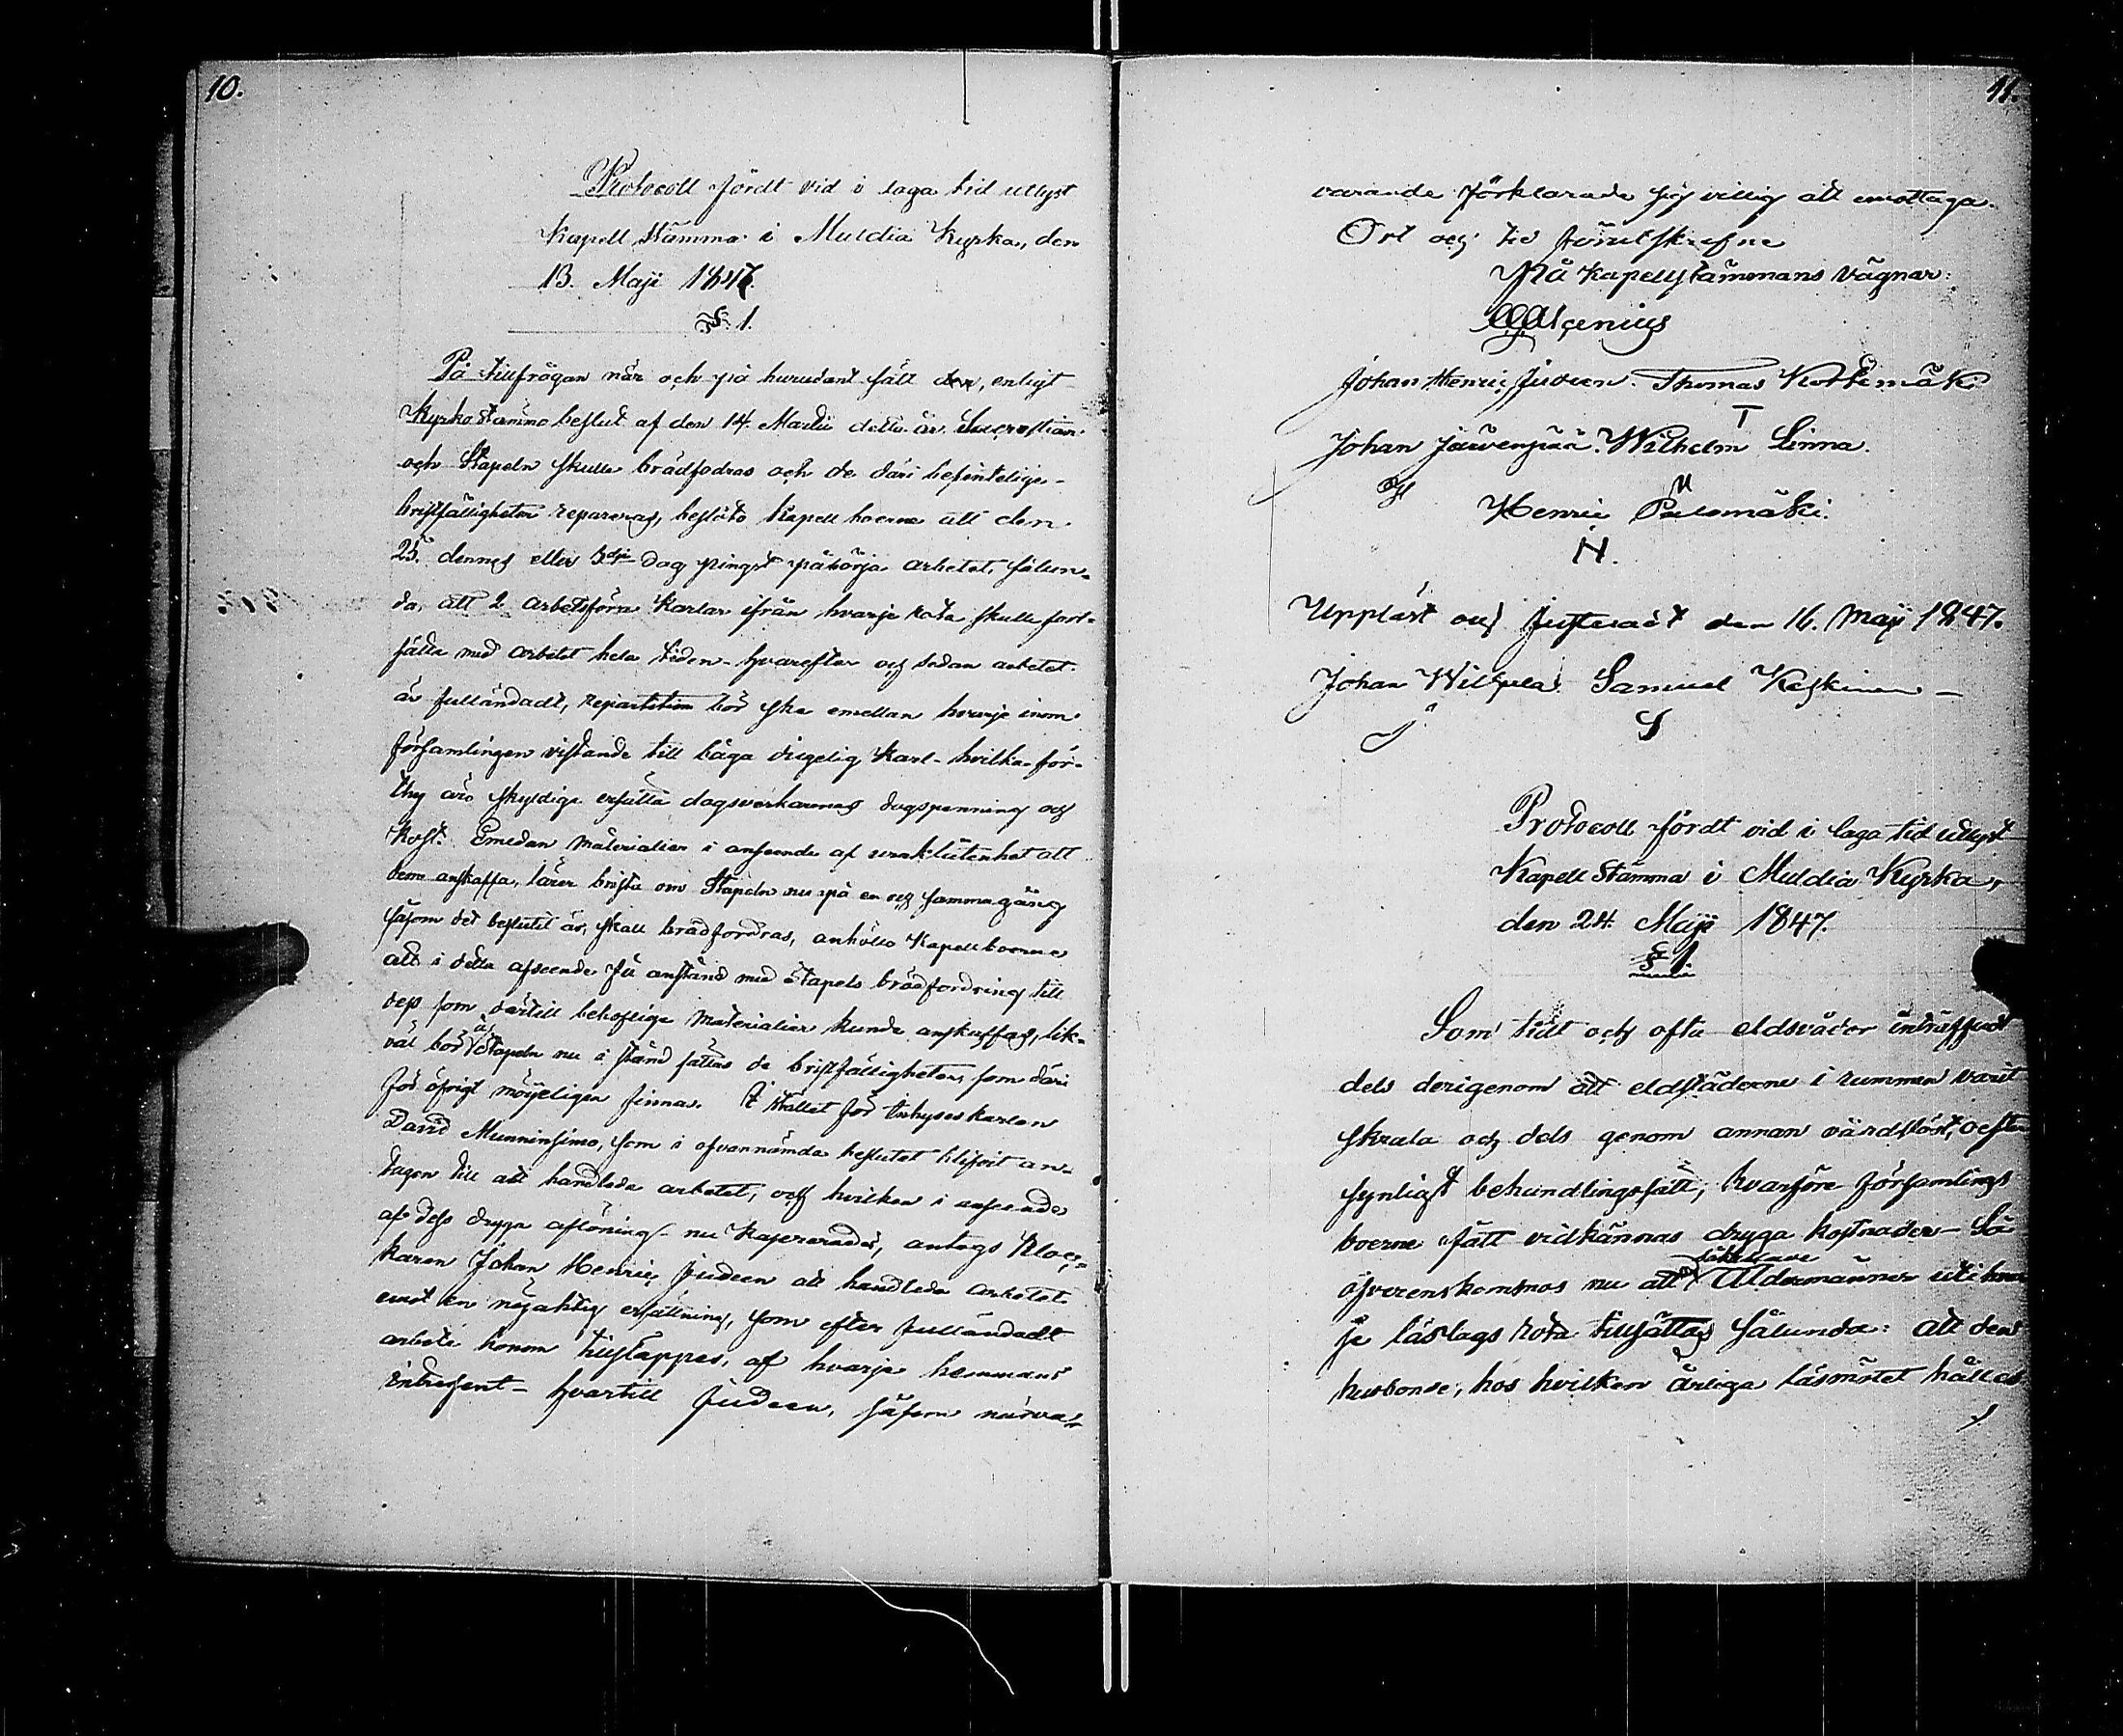 10.
Protocoll fördt vid i laga tid utlyst
Kapell Stämma i Muldia Kyrka, den
13. Maji 1847.
§. 1.
På tillfrågan när och på hurudant sätt den, enligt
Kyrkostämmo beslut af den 14 Martii detta år Sacrestian
och Stapeln skulle brädfodras och de däri befintelige
bristfälligheter repareras, beslöto Kapellboerne att den
25. dennes eller 3dje dag pingst påbörja arbetet, sålun-
da, att 2 arbetsföra Karlar ifrån hvarje rota skulle fort-
sätta med arbetet hela tiden - hvarefter och sedan arbetet
är fulländadt, repartition bör ske emellan hvarje inom
församlingen vistande till båga dugelig Karl - hvilka för-
thy äro skyldige ersätta dagsverkarnas dagspenning och
Kost. Emedan materialier i anseende af svårlütenhet att
dem anskaffa, lärer brista om Stapeln nu på en och samma gång
såsom det beslutit är, skall brädfordras, anhöllo Kapellboerne
att i detta afseende få anstånd med Stapels brädfordring till
dess som därtill behöflige materialier kunde anskaffas, lik-
väl bör å Stapeln nu i stånd sättas de bristfälligheter, som däri
för öfrigt möjeligen finnas. I stället för Inhyses karlen
David Munninsimo, som i ofvannämde beslutet blifvit an-
tagen till att handleda arbetet, och hvilken i anseende
af dess dryga aflöning nu Kasserades, antogs Kloc-
karen Johan Henric Judeen att handleda arbetet
emot en nöjaktig ersättning, som efter fulländadt
arbete honom tillsläppes, af hvarje hemmans
intressent - hvartill Judeen, såsom närva-
11.
varande förklarade sig villig att emottaga.
Ort och tid förutskrefne
På Kapellstämmans vägnar:
Johan Henric Judeen. Thomas Kortemäki
T
Johan Järvenpää. Wilhelm Linna.
Henric Palomäki.
H.
Uppläst och Justeradt den 16. Maji 1847.
Johan Wilhula Samuel Keskinen
J. S
Protocoll fördt vid i laga tid utlyst
Kapell Stämma i Muldia Kyrka,
den 24. Maji 1847.
§ 1.
Som tidt och ofta eldsvådor inträffadt
dels derigenom att eldstäderne i rummen varit
skrala och dels genom annan vårdslöst, oefter
synligt behandlingssätt; hvarföre församlings
boerne fått vidkännas dryga kostnader - Så
öfverenskommos nu att Åldermänner uti hvar
je läslags rota tillsättas sålunda: att den
husbonde, hos hvilken årliga läsmötet hålles